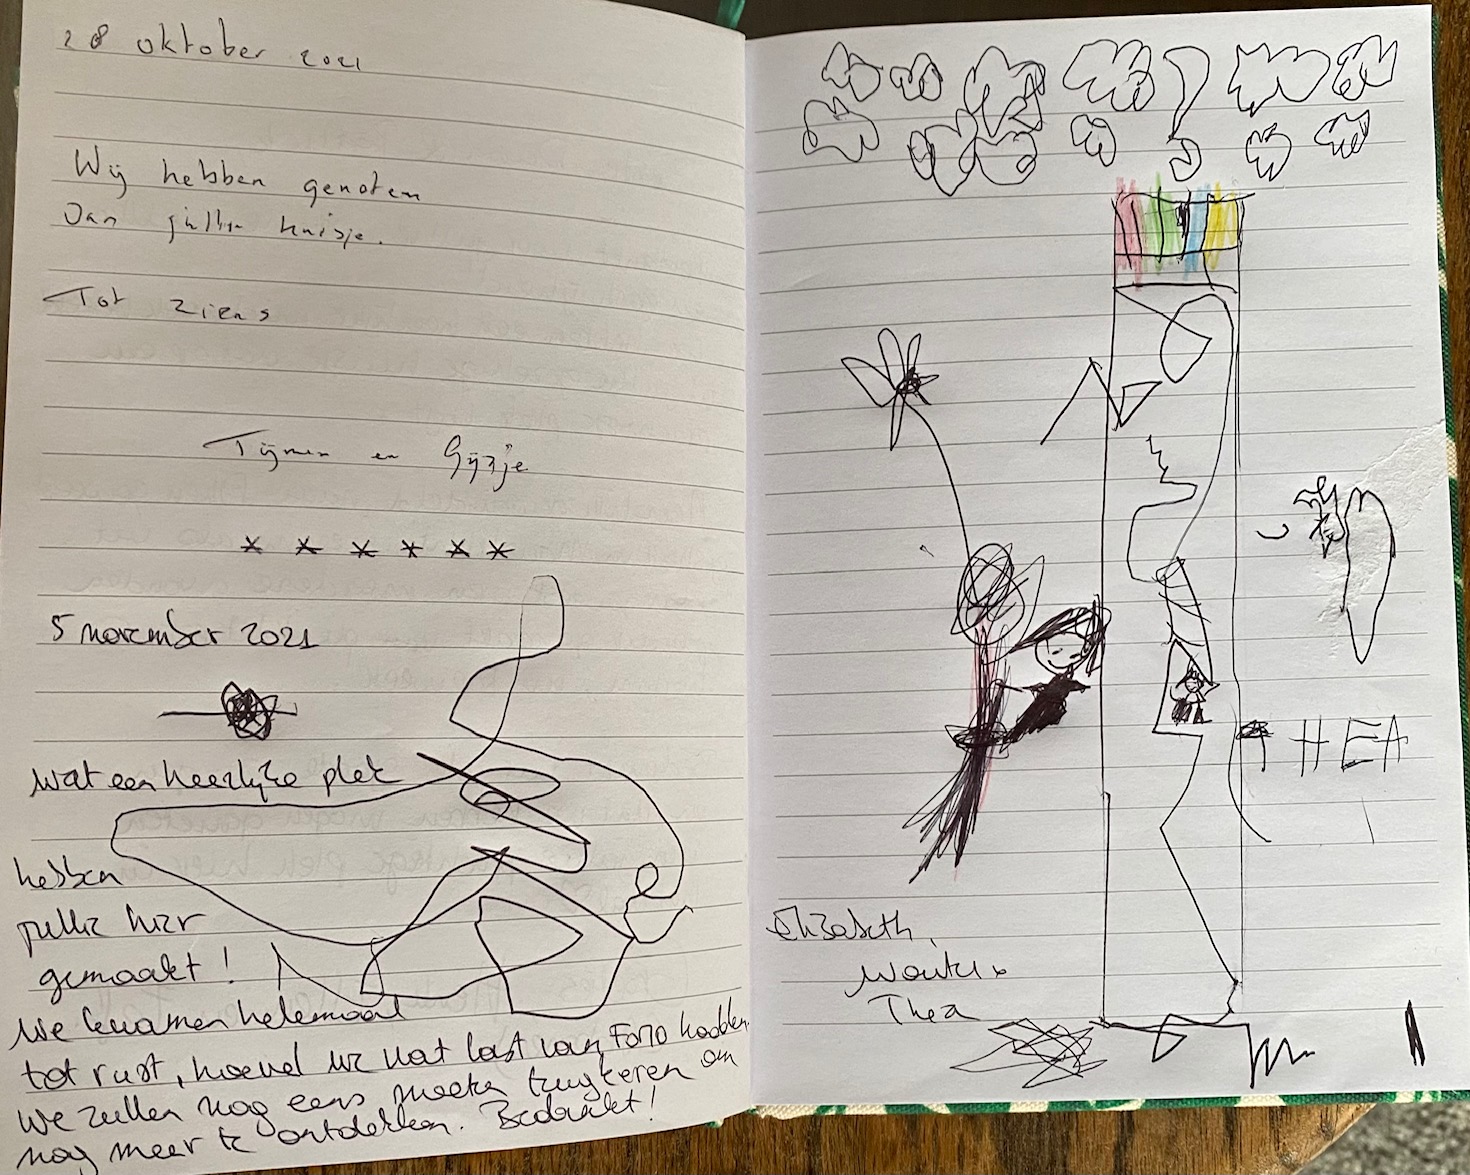 28 oktober 2021
Wij hebben genoten
van jullie huisje.
Tot ziens
Tijmen en Gijsje
* * * * * *
5 november 2021
wat een heerlijke plek
hebben
jullie hier
gemaakt!
We kwamen helemaal
tot rust, hoewel we wat last van FOMO hadden
We zullen nog eens moeten terugkeren om
nog meer te ontdekken. Bedankt!
THEA
Elisabeth,
Wouter
Thea